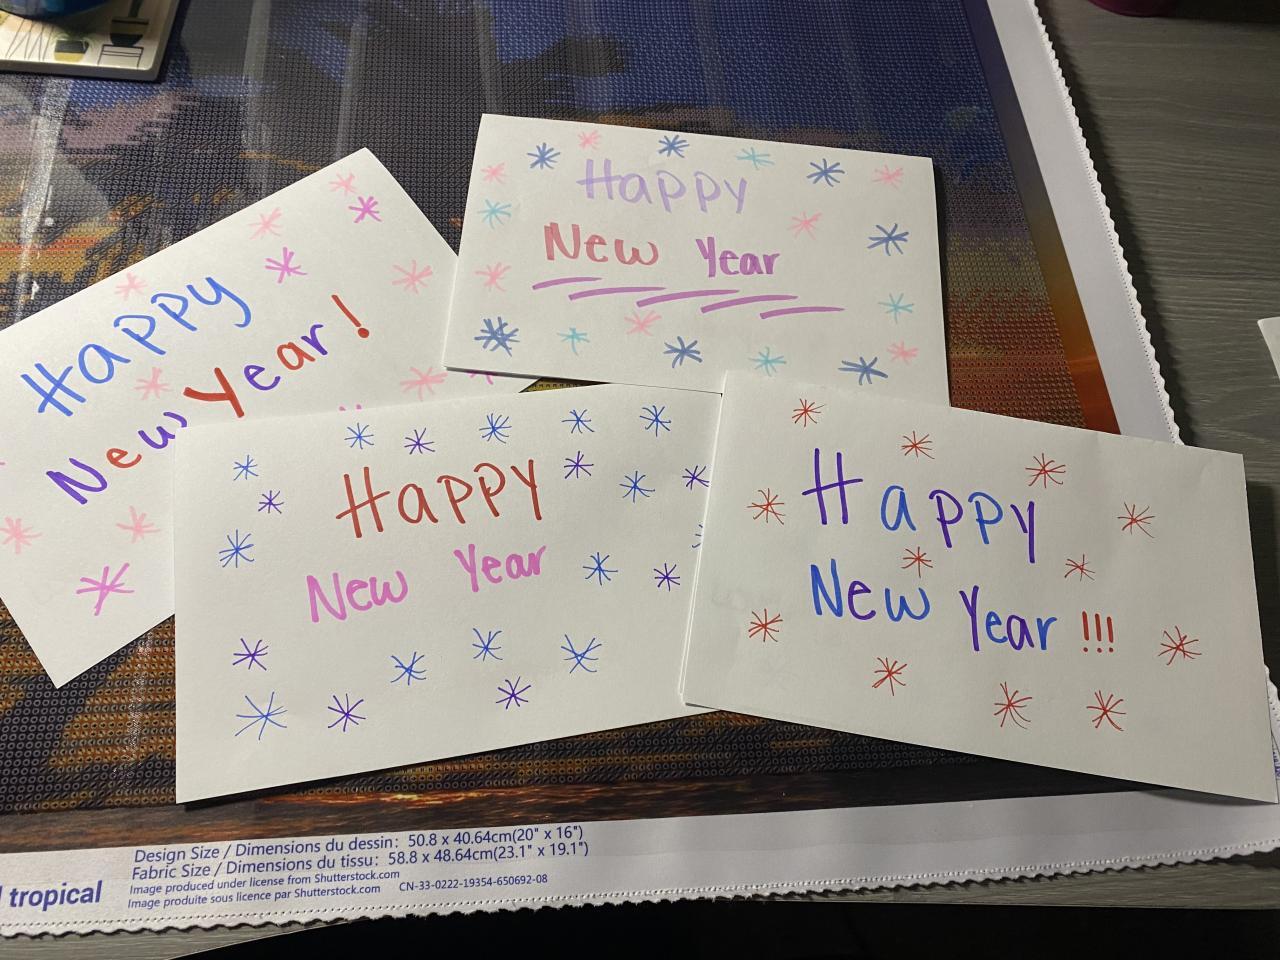 Happy
New Year!
Happy
New Year
Happy
New Year
Happy
New Year!!!
Design Size / Dimensions du dessin: 50.8 x 40.64cm(20" x 16")
Fabric Size / Dimensions du tissu: 58.8 x 48.64cm(23.1" x 19.1")
Image produced under license from Shutterstock.com
Image produite sous licence par Shutterstock.com CN-33-0222-19354-650692-08
tropical